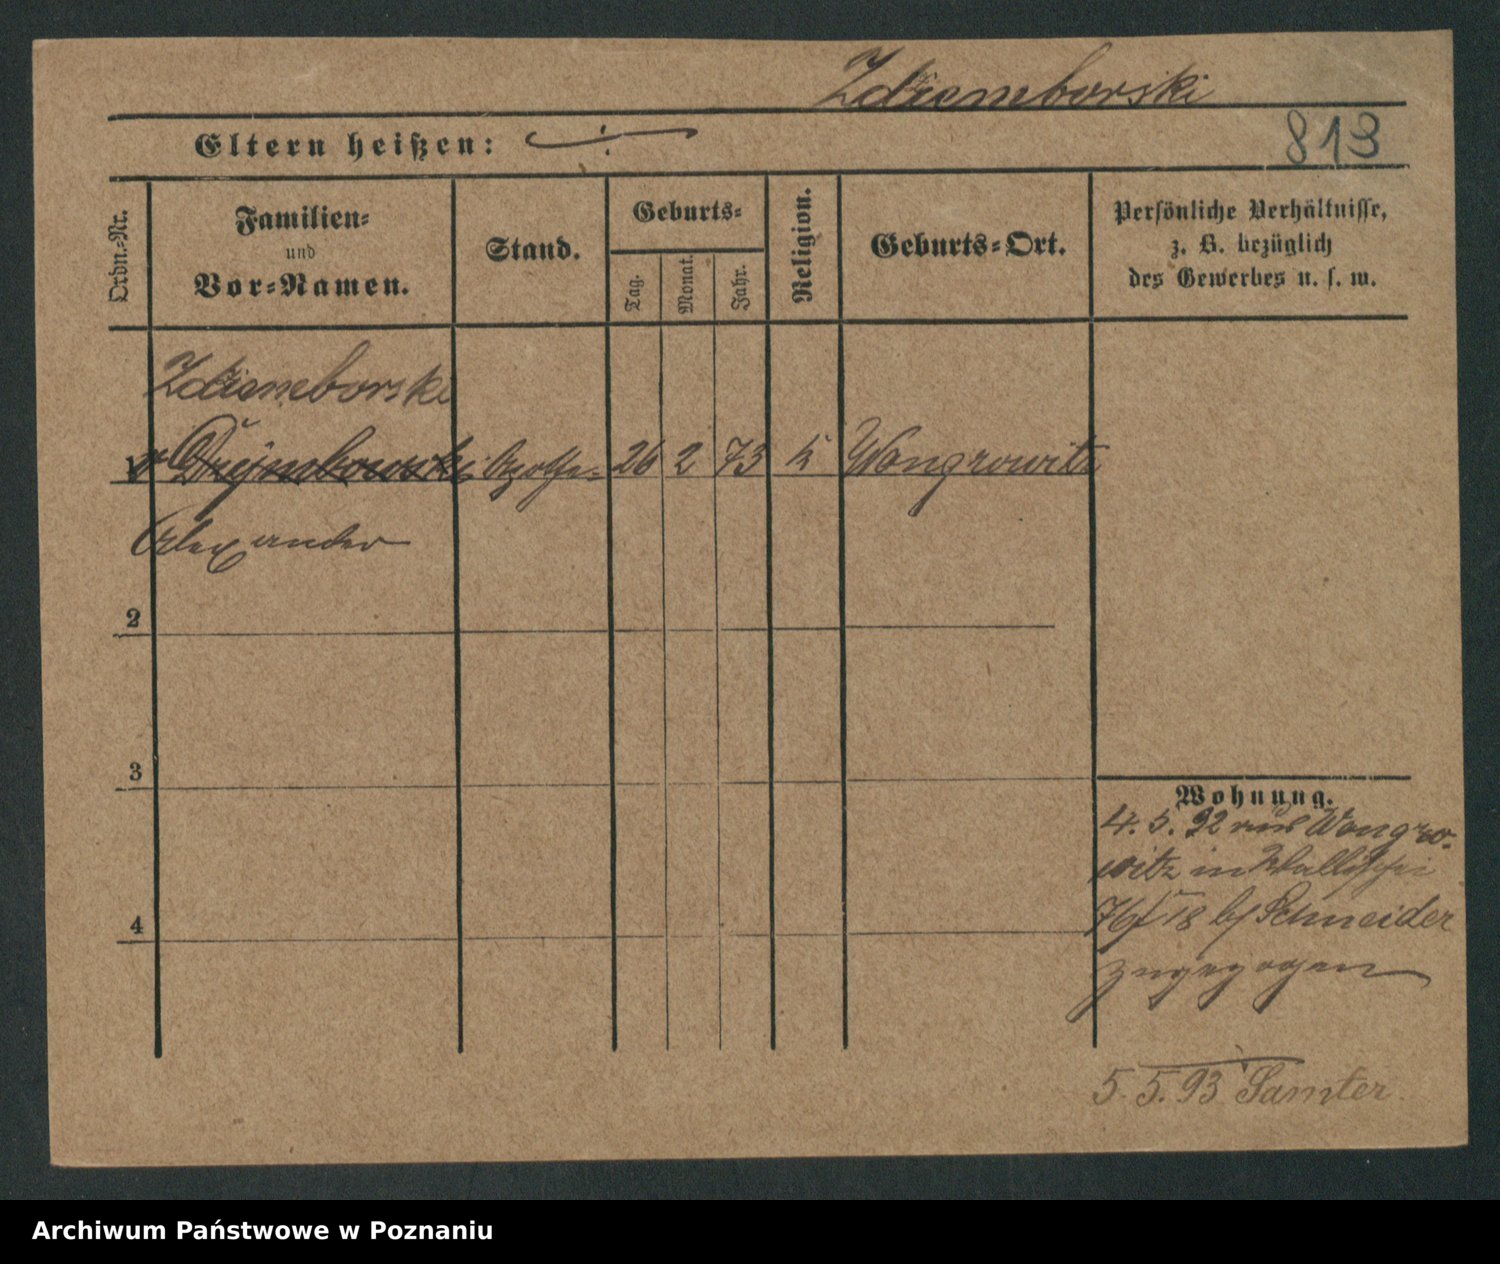 Zdziemborski
Eltern heißen:
813
Ordn.-Nr.
Familien-
und
Vor-Namen.
Stand.
Geburts-
Tag.
Monat.
Jahr.
Religion.
Geburts-Ort.
Persönliche Verhältnisse,
z. B. bezüglich
des Gewerbes u. s. w.
Zdziemborski
1 v Dziejmbowski 26 2 73 k Wongrowitz
Alexander
2
3
4
Wohnung.
4. 5. 92 aus Wongro-
witz in Wallischei
76/ 18 b/ Schneider
zugezogen
5. 5. 93 Samter
Archiwum Państwowe w Poznaniu